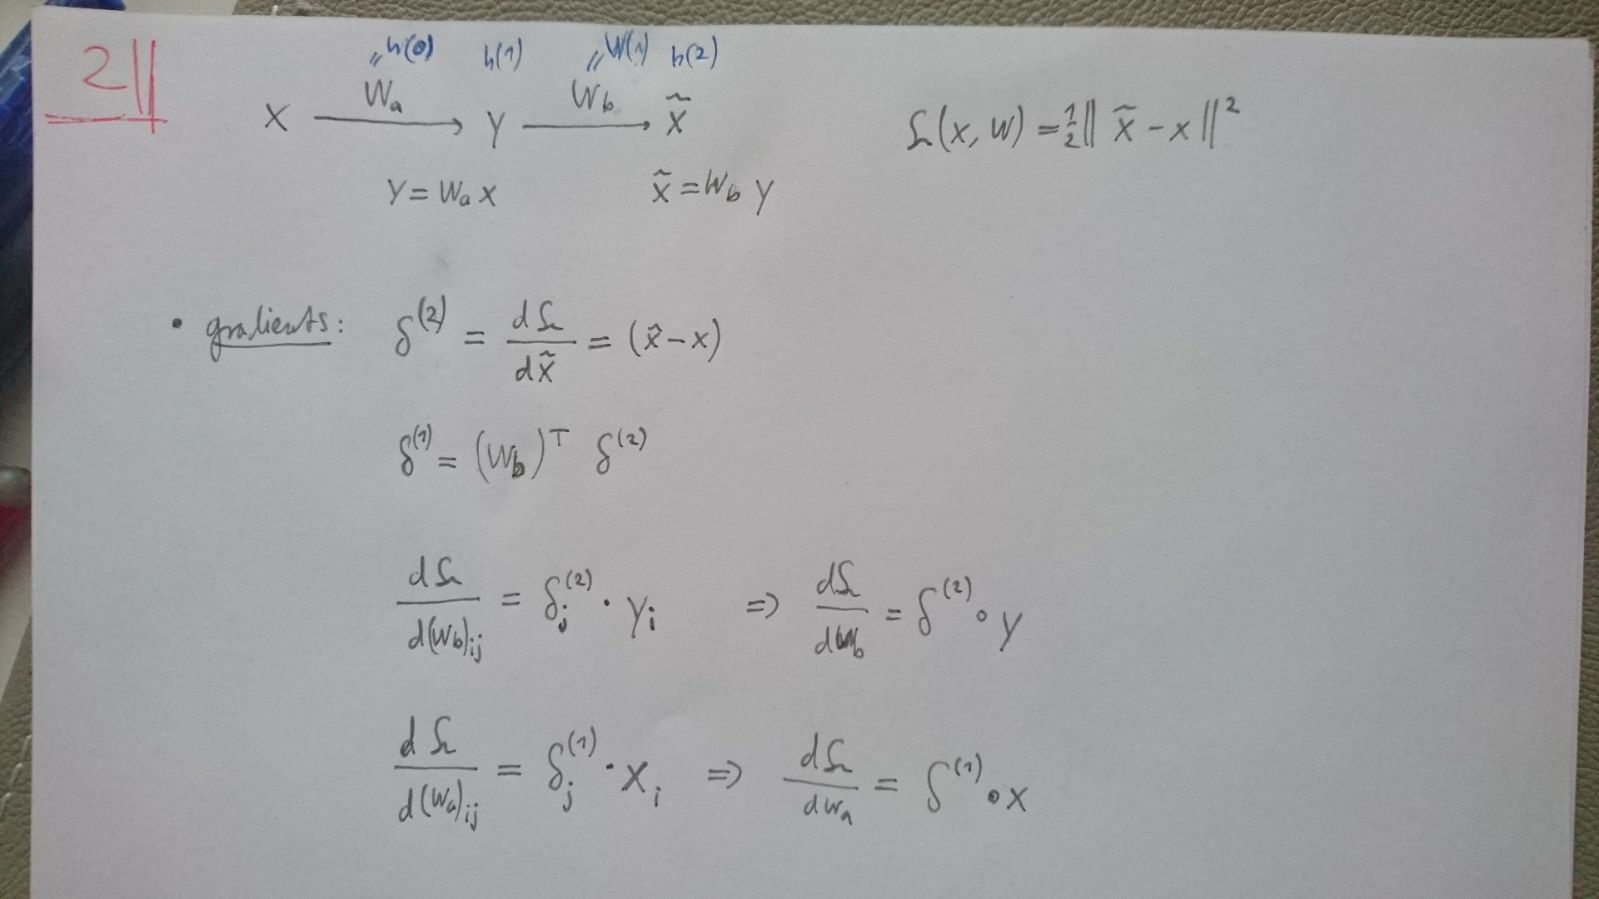 2
"h(0) h(1) "W(1) h(2)
x W_a → y W_b → x̃
L(x, W) = ½ ‖ x̃ - x ‖²
y = W_a x x̃ = W_b y
• gradients: δ^(2) = dL / dx̃ = (x̃ - x)
δ^(1) = (W_b)^T δ^(2)
dL / d(W_b)_ij = δ_j^(2) · y_i ⇒ dL / dW_b = δ^(2) ∘ y
dL / d(W_a)_ij = δ_j^(1) · x_i ⇒ dL / dW_a = δ^(1) ∘ x